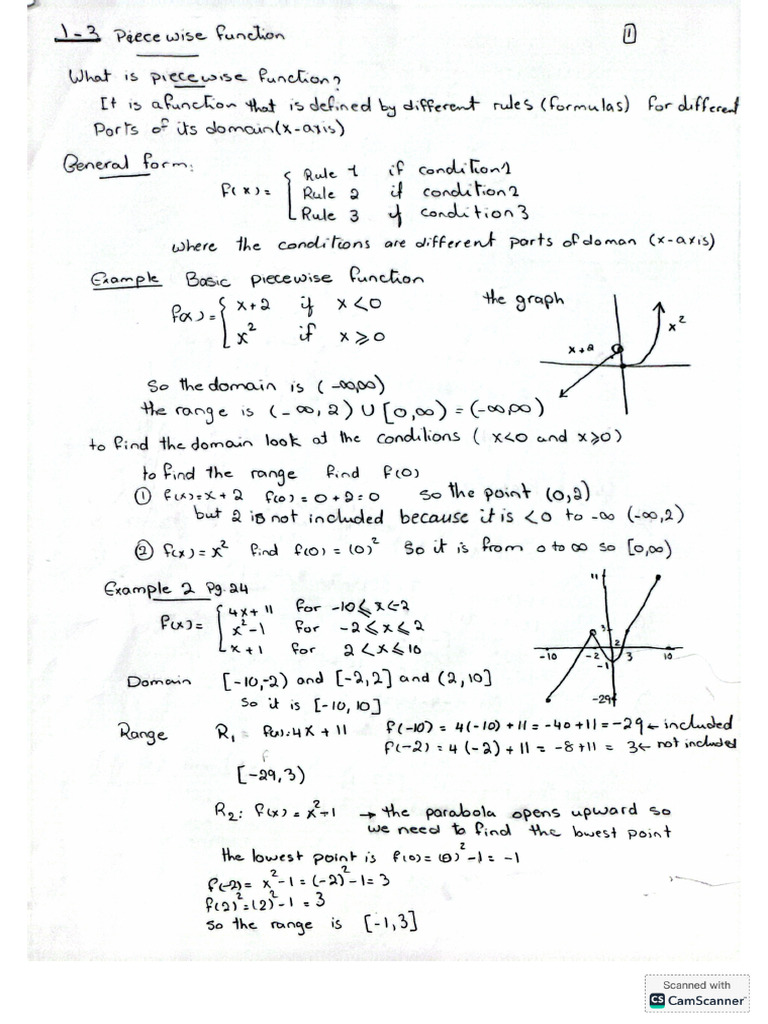 1-3 Piecewise function
1
What is piecewise function?
It is a function that is defined by different rules (formulas) for different
Ports of its domain (x-axis)
General form:
f(x) = { Rule 1 if condition 1
Rule 2 if condition 2
Rule 3 if condition 3
where the conditions are different parts of doman (x-axis)
Example Basic piecewise function
f(x) = { x+2 if x<0
x² if x⩾0
the graph
x+2
x²
So the domain is (-∞,∞)
the range is (-∞, 2) ∪ [0,∞) = (-∞,∞)
to find the domain look at the conditions ( x<0 and x⩾0)
to find the range find f(0)
① f(x)=x+2 f(0) = 0+2=0 so the point (0,2)
but 2 is not included because it is <0 to -∞ (-∞,2)
② f(x) = x² find f(0) = (0)² so it is from 0 to ∞ so [0,∞)
Example 2 Pg.24
f(x) = { 4x+11 for -10⩽x<-2
x²-1 for -2⩽x⩽2
x+1 for 2<x⩽10
11
3
2
-10
-2
3
10
-1
-29
Domain [-10,-2) and [-2,2] and (2,10]
so it is [-10,10]
Range R₁ = f(x)=4x+11 f(-10) = 4(-10)+11 = -40+11 = -29 ← included
f(-2) = 4(-2)+11 = -8+11 = 3 ← not included
[-29,3)
R₂: f(x) = x²-1 → the parabola opens upward so
we need to find the lowest point
the lowest point is f(0) = (0)²-1 = -1
f(-2) = x²-1 = (-2)²-1 = 3
f(2)²=(2)²-1 = 3
so the range is [-1,3]
Scanned with
CS CamScanner